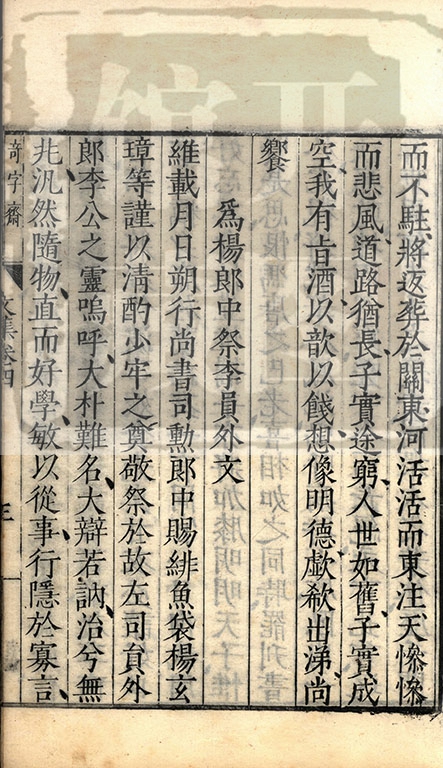 而不駐將返葬於關東河活活而東注天慘慘
而悲風道路猶長子實途窮人世如舊子實成
空我有旨酒以歆以餞想像明德歔欷出涕尚
饗
爲楊郎中祭李員外文
維載月日朔行尚書司勲郎中賜緋魚袋楊玄
璋等謹以清酌少牢之奠敬祭於故左司員外
郎李公之靈嗚呼大朴難名大辯若訥冶兮無
兆汎然隨物直而好學敏以從事行隱於寡言
奇字齋
文集卷四
三